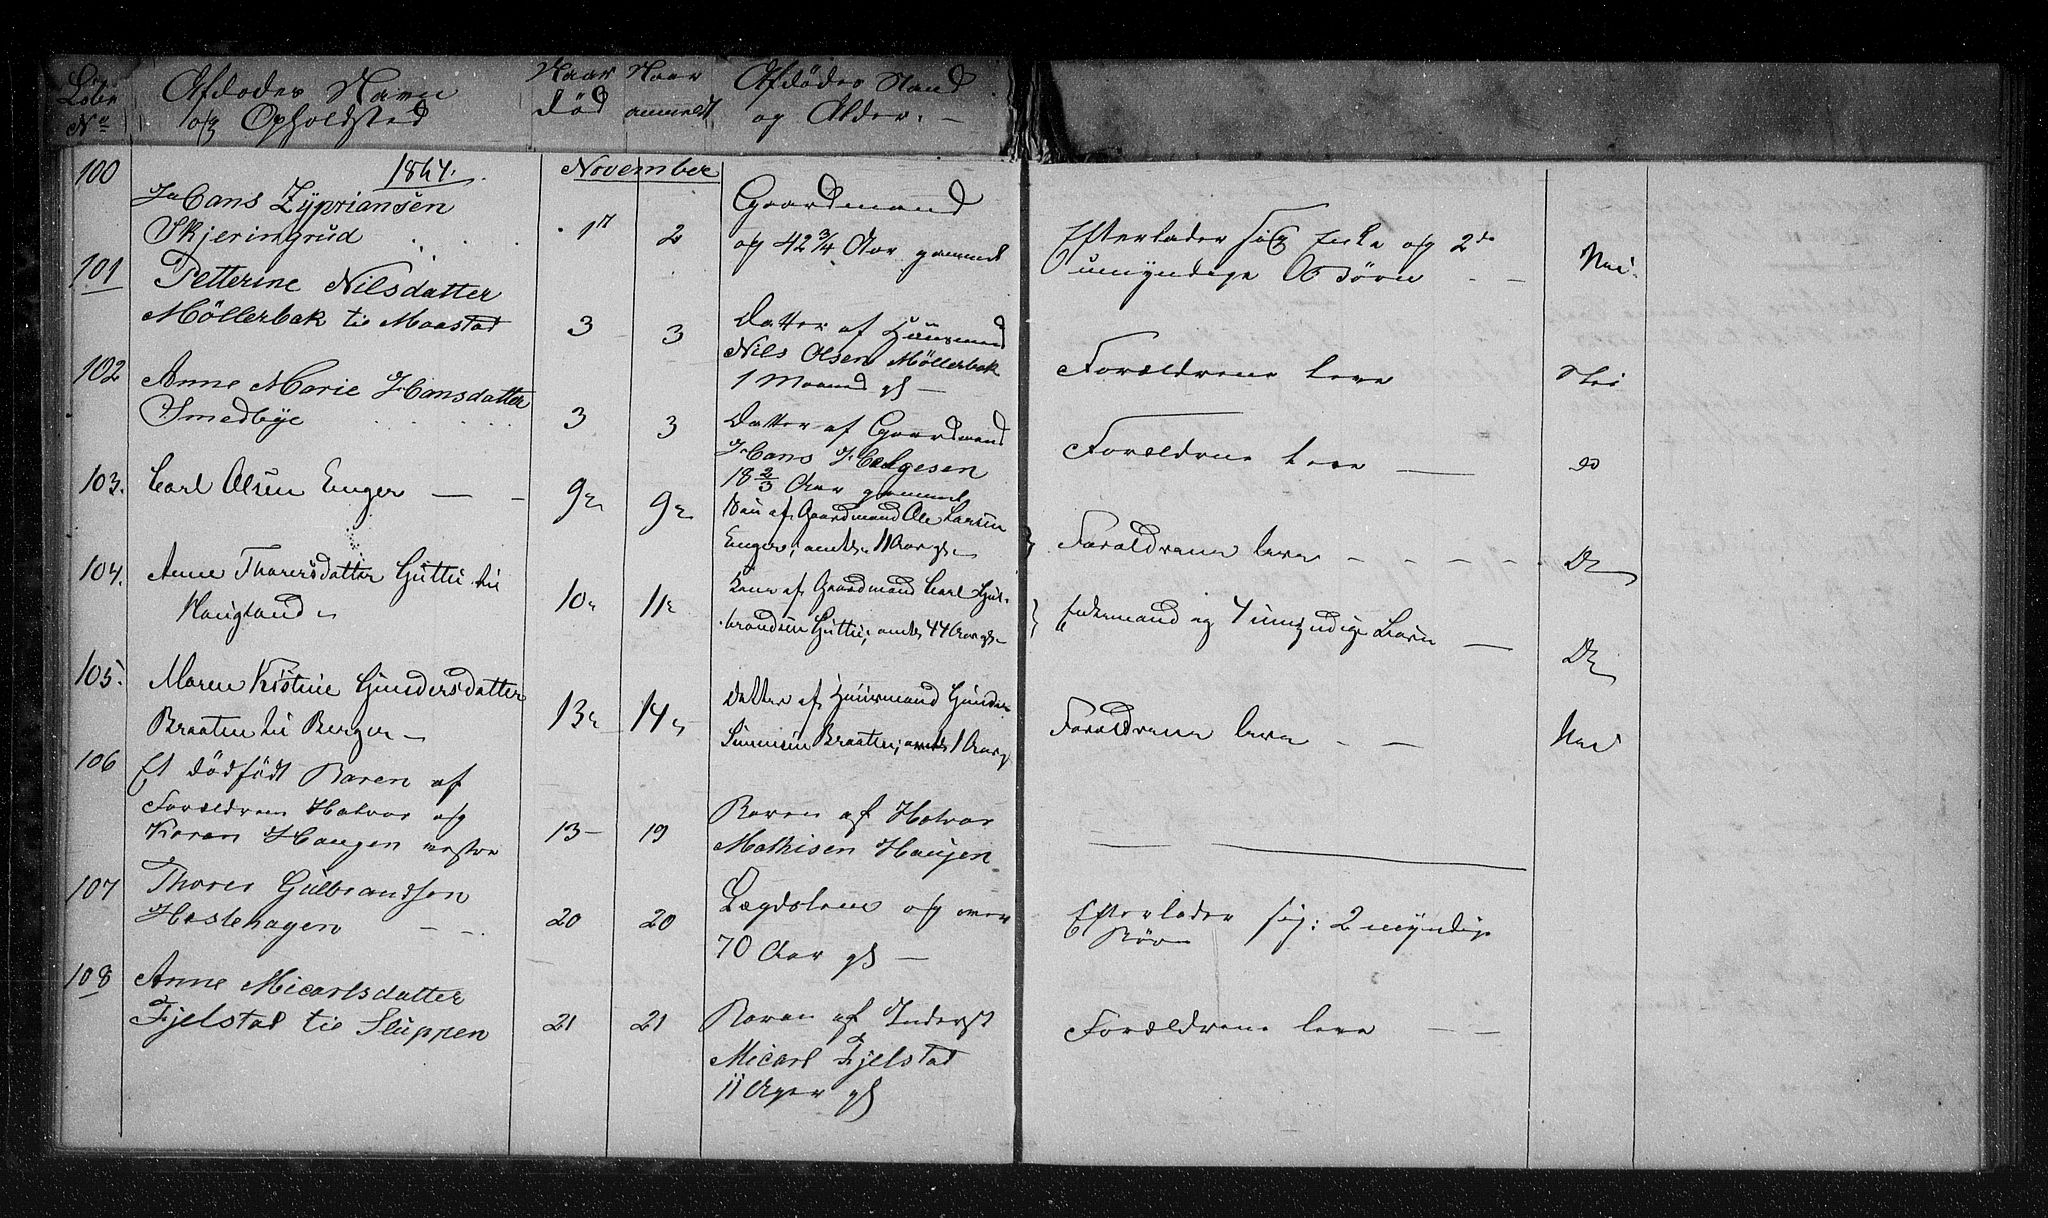 Løbe Afdødes Navn Naar Naar Afdødes Stand
No og Opholdsted død anmeldt og Alder. –
100 1864. November
Hans Zÿpriansen Gaardmand
Skjeringrud 17 2 og 42 3/4 Aar gammel
Efterlader sig Enke og 2de
umyndige Børn – – Nei.
101 Petterine Nilsdatter
Möllerbak til Maastad 3 3 Datter af Huusmand
Nils Olsen Möllerbak
1 Maaned gl –
Forældrene leve Nei
102 Anne Marie Hansdatter
Smedbÿe 3 3 Datter af Gaardmand
Hans Helgesen
18 2/3 Aar gammel
Forældrene leve — do
103. Carl Olsen Enger — – 9 9 Søn af Gaardmand Ole Larsen
Enger; 11 Aar gl.
Forældrene leve – – – – Do
104. Anne Thorersdatter Guttu til
Haugland 10 11 Kone af Gaardmand Carl Gul-
brandsen Guttu; 44 Aar gl.
Enkemand og 4 umyndige Børn — Do
105. Maren Kistine Gundersdatter
Braaten til Berger – 13 14 Datter af Huusmand Gunder
Simensen Braaten; 1 Aar gl
Forældrene leve – – Nei
106 Et dødfødt Baren af
Forældrene Halvor og
Karen Haugen 13 – 19 Baren af Halvor
Mathisen Haugen
107 Thorer Gulbrandsen
Hestehagen – – 20 20 Lægdslem og over
70 Aar gl –
Efterlader sig: 2 myndige
Børn
108 Anne Micarlsdatter
Fjelstad til Sluppen 21 21 Baren af Inderst
Micarl Fjelstad
11 Uger gl
Forældrene leve – –